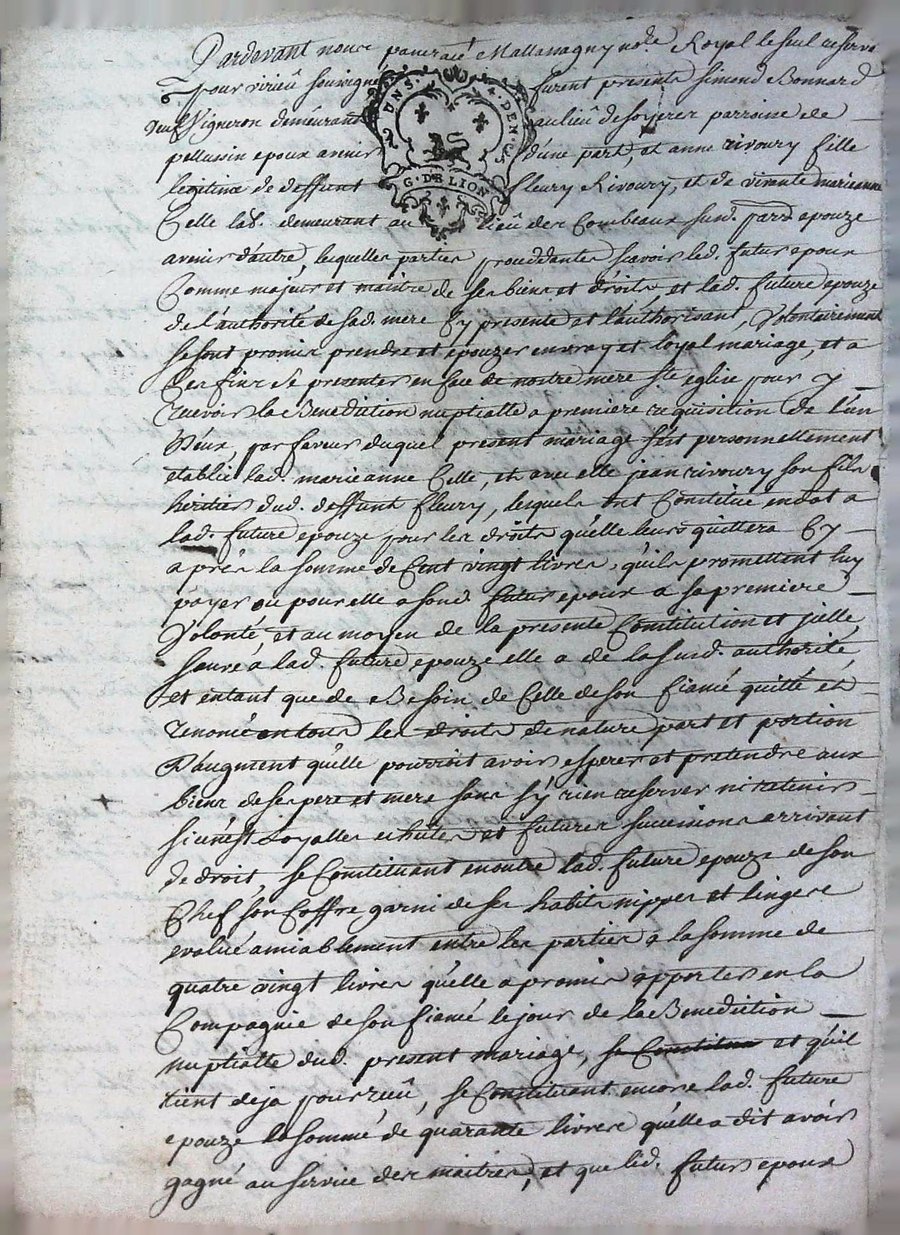 Pardevant nous pancrace Mallamagny no.re Royal le seul reservé
pour virieû souvigné furent presents simond Bonnard
veuf Vigneron demeurant au lieû de soyerer parroisse de
pellussin epoux avenir d'une part, et anne rivoury fille
legitime de deffunt fleury Rivoury, et de vivante marieanne
Celle lad. demeurant au lieû des Combeaux susd. parr.e epouze
avenir d'autre, lesquelles parties proceddantes scavoir led. futur epoux
Comme majeur et maitre de ses biens et droits et lad. future epouze
de l'authorité de sad. mere Cy presente et l'authorisant, Volontairement
se sont promis prendre et epouzer en vray et loyal mariage, et a
Ces fins se presenter en face de nostre mere ste eglise pour y
recevoir la Benediction nuptialle a premiere requisition de l'un
d'eux, par faveur duquel present mariage s'est personnellement
etablie lad. marieanne Celle, et avec elle jean rivoury son fils
heritier dud. deffunt fleury, lesquels ont Constitué en dot a
lad. future epouze pour les droits qu'elle leurs quittera Cy
apres la somme de Cent vingt livres, qu'ils promettent luy
payer ou pour elle a sond. futur epoux a sa premiere
Volonté et au moyen de la presente Constitution et jcelle
sauvé a lad. future epouze elle a de la susd. authorité
et entant que de Besoin de Celle de son fiancé quitté et
renoncé en tous les droits de nature part et portion
D'augment qu'elle pourroit avoir esperer et pretendre aux
biens de ses pere et mere sans s'y rien reserver ni retenir
si ce n'est Loyalles echutes et futures successions arrivant
de droit, se Constituant en outre lad. future epouze de son
Chef son Coffre garni de ses habits nippes et lingere
evalué amiablement entre les parties a la somme de
quatre vingt livres qu'elle a promis apporter en la
Compagnie de son fiancé le jour de la Benediction
nuptialle dud. present mariage, se Constitua et qu'il
tient deja pour recû, se Constituant encore lad. future
epouze la somme de quarante livres qu'elle a dit avoir
gagné au service des maitres, et que led. futur epoux
UNS. 4. DEN.
G. DE LION